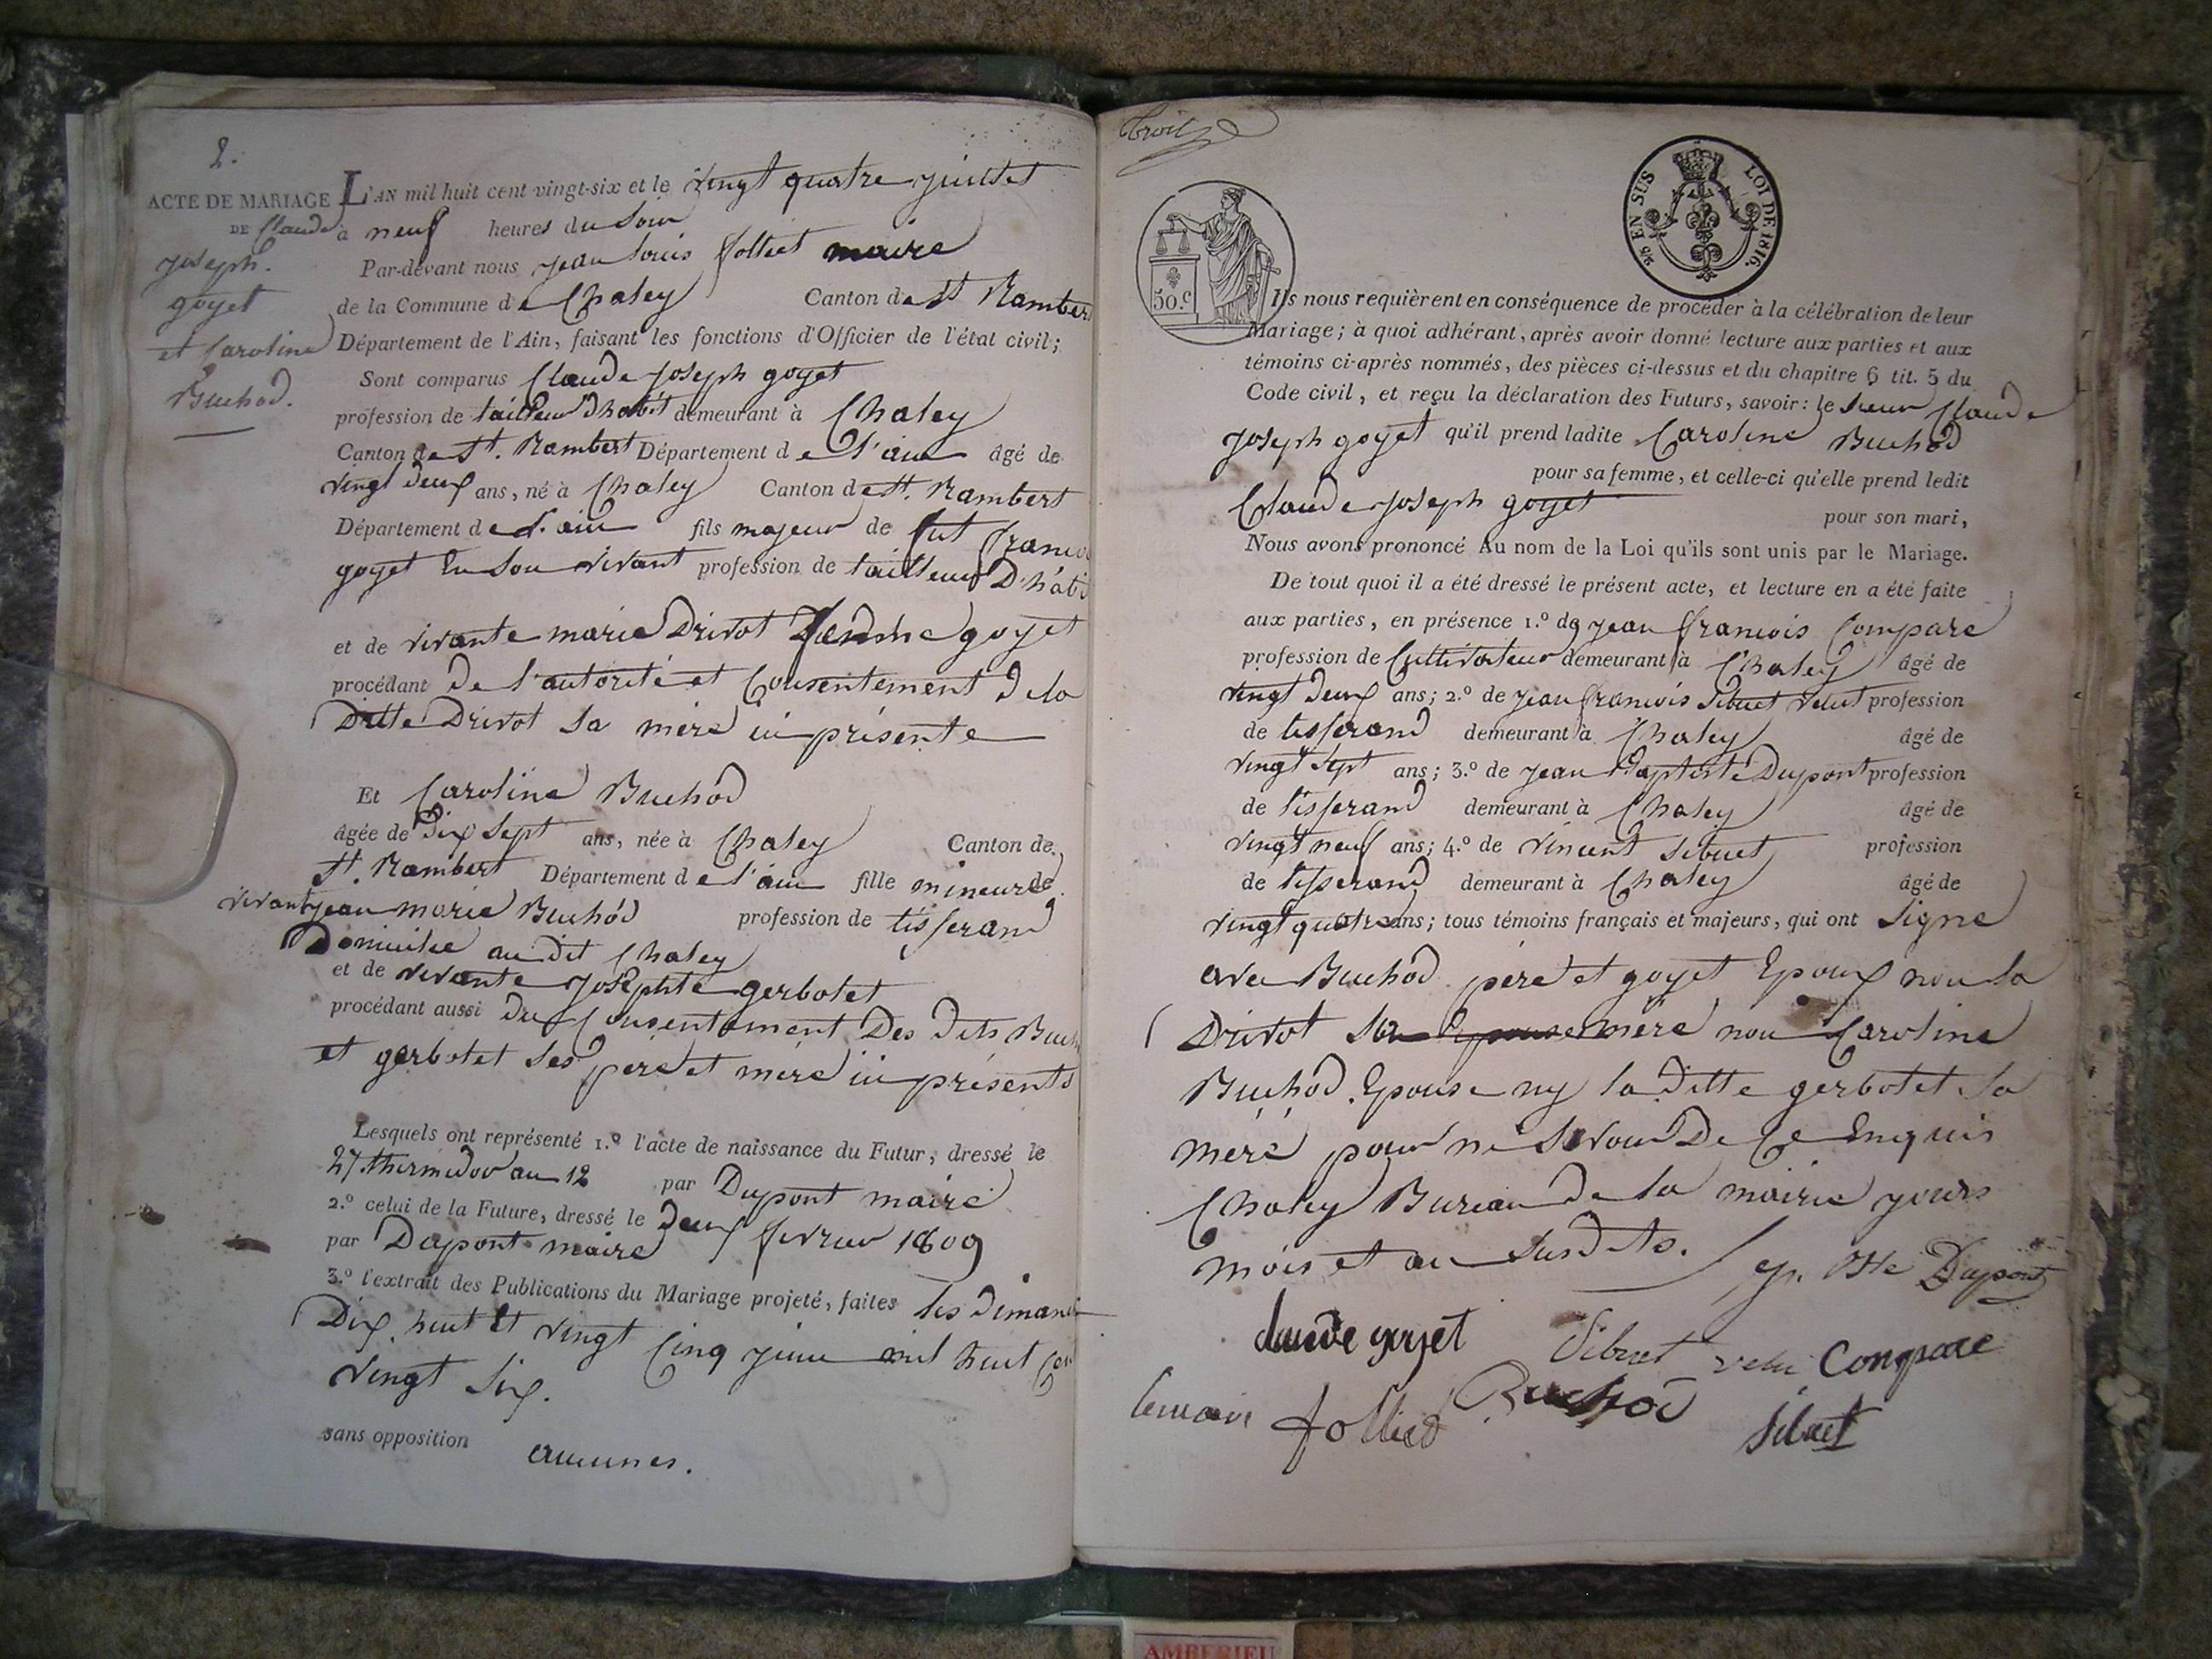 2.
ACTE DE MARIAGE
DE Claude
joseph
goyet
et Caroline
Buchod.
L'AN mil huit cent vingt-six et le vingt quatre juillet
à neuf heures du soir
Par-devant nous jean louis folliet maire
de la Commune de Chaley Canton de St Rambert
Département de l'Ain, faisant les fonctions d'Officier de l'état civil;
Sont comparus Claude joseph goyet
profession de tailleur d'habit demeurant à Chaley
Canton de St. Rambert Département de l'ain âgé de
vingt deux ans, né à Chaley Canton de St. Rambert
Département de l'ain fils majeur de fut francois
goyet En son vivant profession de tailleur D'habit
et de vivante marie Drivot goyet
procédant De l'autorité et Consentement De la
Ditte Drivot sa mère ici présente
Et Caroline Buchod
âgée de Dix sept ans, née à Chaley Canton de
St. Rambert Département de l'ain fille mineure de
vivant jean marie Buchod profession de tisserand
Domicilié au dit Chaley
et de vivante josephte gerbotet
procédant aussi Du Consentement Des dits Buch
et gerbotet ses père et mere ici présents
Lesquels ont représenté 1.º l'acte de naissance du Futur, dressé le
27 thermidor an 12 par Dupont maire
2.º celui de la Future, dressé le Deux fevrier 1809
par Dupont maire
3.º l'extrait des Publications du Mariage projeté, faites les dimanch
Dix huit Et vingt Cinq juin mil huit Cen
vingt six.
sans opposition aucunes.
50.c
25 EN SUS LOI DE 1816.
Ils nous requièrent en conséquence de procéder à la célébration de leur
Mariage; à quoi adhérant, après avoir donné lecture aux parties et aux
témoins ci-après nommés, des pièces ci-dessus et du chapitre 6 tit. 5 du
Code civil, et reçu la déclaration des Futurs, savoir: le sieur Claude
joseph goyet qu'il prend ladite Caroline Buchod
pour sa femme, et celle-ci qu'elle prend ledit
Claude joseph goyet
pour son mari,
Nous avons prononcé Au nom de la Loi qu'ils sont unis par le Mariage.
De tout quoi il a été dressé le présent acte, et lecture en a été faite
aux parties, en présence 1.º de jean francois Compare
profession de Cultivateur demeurant à Chaley âgé de
vingt deux ans; 2.º de jean francois Sibuet velut profession
de tisserand demeurant à Chaley âgé de
vingt sept ans; 3.º de jean Baptiste Dupont profession
de tisserand demeurant à Chaley âgé de
vingt neuf ans; 4.º de vincent sibuet profession
de tisserand demeurant à Chaley âgé de
vingt quatre ans; tous témoins français et majeurs, qui ont signe
avec Buchod père et goyet Epoux non la
Drivot sa Epouse mère non Caroline
Buchod Epouse ny la Ditte gerbotet sa
mere pour ne savoir De Ce Enquis
Chaley Bureau De la mairie jours
mois et an susdits.
Bte Dupont
claude goyet Sibuet velu Compare
lemaire folliet Buchod Sibuet
AMBERIEU